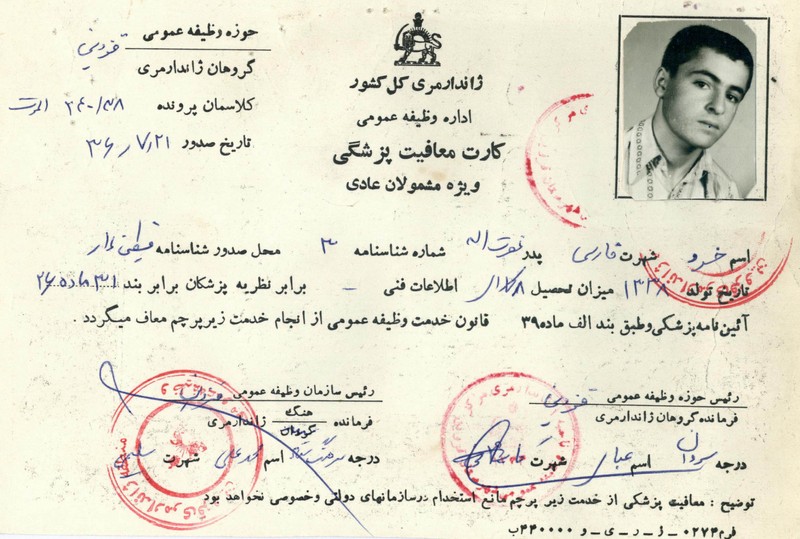 حوزه وظیفه عمومی قزوین
گروهان ژاندارمری
کلاسمان پرونده ۲۴۰/۳۸
تاریخ صدور ۳۶/۷/۲۱
ژاندارمری کل کشور
اداره وظیفه عمومی
کارت معافیت پزشگی
ویژه مشمولان عادی
اسم خسرو شهرت فارسی پدر شماره شناسنامه ۳ محل صدور شناسنامه
تاریخ تولد ۱۳۳۸ میزان تحصیل اطلاعات فنی – برابر نظریه پزشکان برابر بند ۳۱ ماده ۲۶
آئین‌نامه پزشکی وطبق بند الف ماده ۳۹ قانون خدمت وظیفه عمومی از انجام خدمت زیر پرچم معاف میگردد .
رئیس حوزه وظیفه عمومی قزوین
فرمانده گروهان ژاندارمری
درجه سروان اسم عباس شهرت
رئیس سازمان وظیفه عمومی قزوین
فرمانده هنگ گروهان ژاندارمری
درجه اسم محمدعلی شهرت
توضیح : معافیت پزشگی از خدمت زیر پرچم مانع استخدام درسازمانهای دولتی وخصوصی نخواهد بود
فرم ۰۲۷۴ – ژ – ر – ی – و ۴۴۰۰۰۰ ب